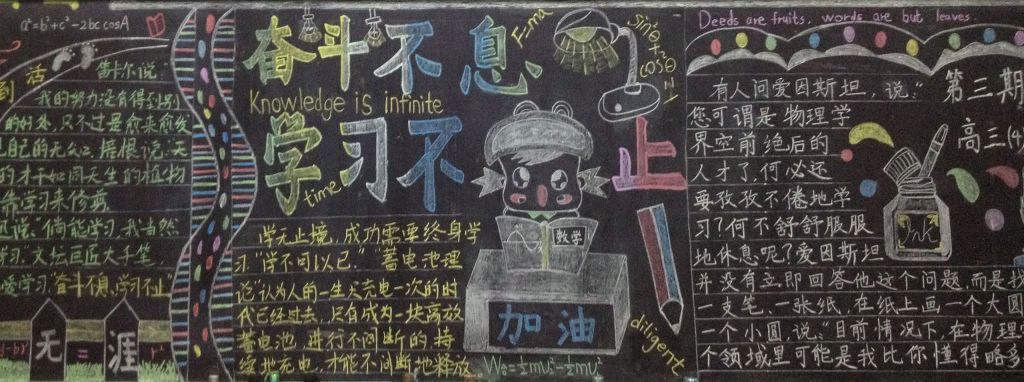 a²=b²+c²-2bc cosA
活
到
笛卡尔说:
我的努力没有得到别
的好处,只不过是愈来愈发
自己的无知。培根说:天
的才干如同天生的植物
靠学习来修剪
说:倘能学习,我当然
学习。文坛巨匠大手笔,
爱学习。奋斗不息,学习不止
无
=
涯
奋斗不息
F=ma
Knowledge is infinite
学习不止
time
sin²x+cos²x=1
学无止境,成功需要终身学
习"学不可以已。"蓄电池理
论"认为人的一生只充电一次的时
代已经过去,只有成为一块高效
蓄电池,进行不间断的、持
续地充电,才能不间断地释放。
数学
加油
diligent
W合=½mv₂²-½mv₁²
Deeds are fruits, words are but leaves
第三期
高三(4)
有人问爱因斯坦,说:"
您可谓是物理学
界空前绝后的
人才了,何必还
要孜孜不倦地学
习?何不舒舒服服
地休息呢?爱因斯坦
并没有立即回答他这个问题,而是找
一支笔、一张纸,在纸上画一个大圆
一个小圆,说:"目前情况下,在物理
个领域里可能是我比你懂得略多
Ink